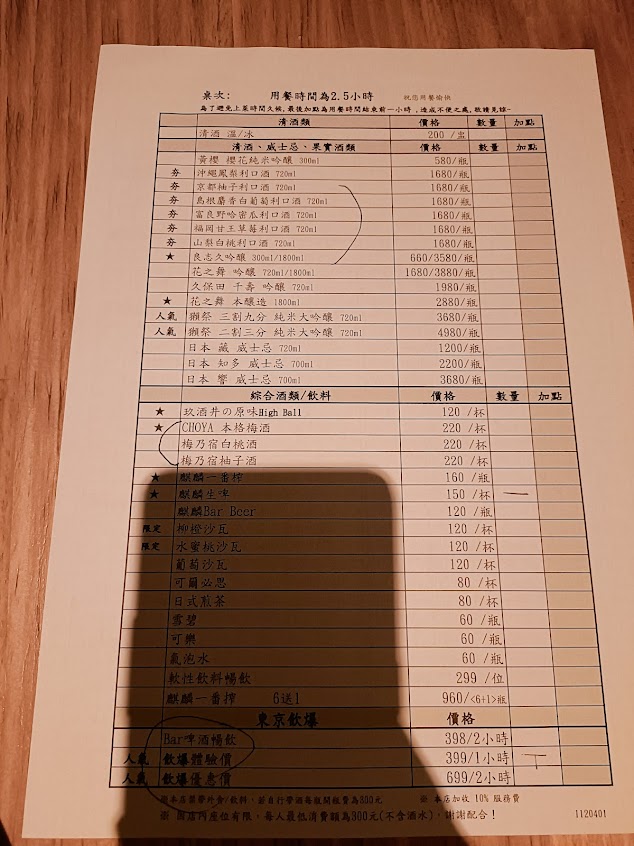 桌次: 用餐時間為2.5小時 祝您用餐愉快
為了避免上菜時間久候,最後加點為用餐時間結束前一小時,造成不便之處,敬請見諒~
清酒類 價格 數量 加點
清酒 溫/冰 200 /盅
清酒、威士忌、果實酒類 價格 數量 加點
黃櫻 櫻花純米吟釀 300ml 580/瓶
夯 沖繩鳳梨利口酒 720ml 1680/瓶
夯 京都柚子利口酒 720ml 1680/瓶
夯 島根麝香白葡萄利口酒 720ml 1680/瓶
夯 富良野哈密瓜利口酒 720ml 1680/瓶
夯 福岡甘王草莓利口酒 720ml 1680/瓶
夯 山梨白桃利口酒 720ml 1680/瓶
★ 良志久吟釀 300ml/1800ml 660/3580/瓶
花之舞 吟釀 720ml/1800ml 1680/3880/瓶
久保田 千壽 吟釀 720ml 1980/瓶
★ 花之舞 本釀造 1800ml 2880/瓶
人氣 獺祭 三割九分 純米大吟釀 720ml 3680/瓶
人氣 獺祭 二割三分 純米大吟釀 720ml 4980/瓶
日本 藏 威士忌 720ml 1200/瓶
日本 知多 威士忌 700ml 2200/瓶
日本 響 威士忌 700ml 3680/瓶
綜合酒類/飲料 價格 數量 加點
★ 玖酒井の原味High Ball 120 /杯
★ CHOYA 本格梅酒 220 /杯
梅乃宿白桃酒 220 /杯
梅乃宿柚子酒 220 /杯
★ 麒麟一番搾 160 /瓶
★ 麒麟生啤 150 /杯 一
麒麟Bar Beer 120 /瓶
限定 柳橙沙瓦 120 /杯
限定 水蜜桃沙瓦 120 /杯
葡萄沙瓦 120 /杯
可爾必思 80 /杯
日式煎茶 80 /杯
雪碧 60 /瓶
可樂 60 /瓶
氣泡水 60 /瓶
軟性飲料暢飲 299 /位
麒麟一番搾 6送1 960/<6+1>瓶
東京飲爆 價格
Bar啤酒暢飲 398/2小時
人氣 飲爆體驗價 399/1小時 T
人氣 飲爆優惠價 699/2小時
※本店禁帶外食/飲料,若自行帶酒每瓶開瓶費為300元 ※ 本店加收 10% 服務費
※ 因店內座位有限,每人最低消費額為300元(不含酒水),謝謝配合! 1120401